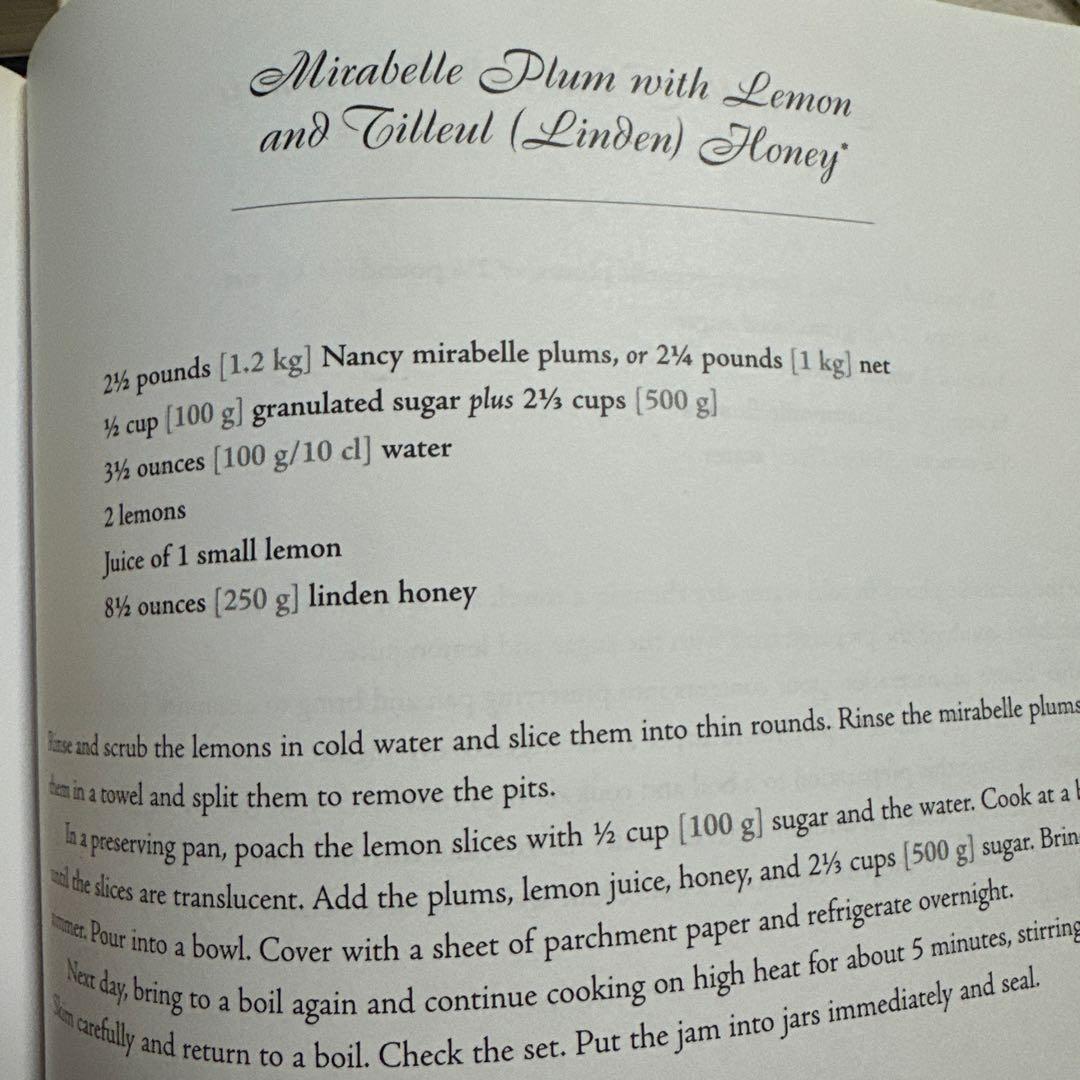 Mirabelle Plum with Lemon
and Tilleul (Linden) Honey*
2½ pounds [1.2 kg] Nancy mirabelle plums, or 2¼ pounds [1 kg] net
½ cup [100 g] granulated sugar plus 2⅓ cups [500 g]
3½ ounces [100 g/10 cl] water
2 lemons
Juice of 1 small lemon
8½ ounces [250 g] linden honey
Rinse and scrub the lemons in cold water and slice them into thin rounds. Rinse the mirabelle plums
them in a towel and split them to remove the pits.
In a preserving pan, poach the lemon slices with ½ cup [100 g] sugar and the water. Cook at a b
until the slices are translucent. Add the plums, lemon juice, honey, and 2⅓ cups [500 g] sugar. Brin
simmer. Pour into a bowl. Cover with a sheet of parchment paper and refrigerate overnight.
Next day, bring to a boil again and continue cooking on high heat for about 5 minutes, stirring
Skim carefully and return to a boil. Check the set. Put the jam into jars immediately and seal.